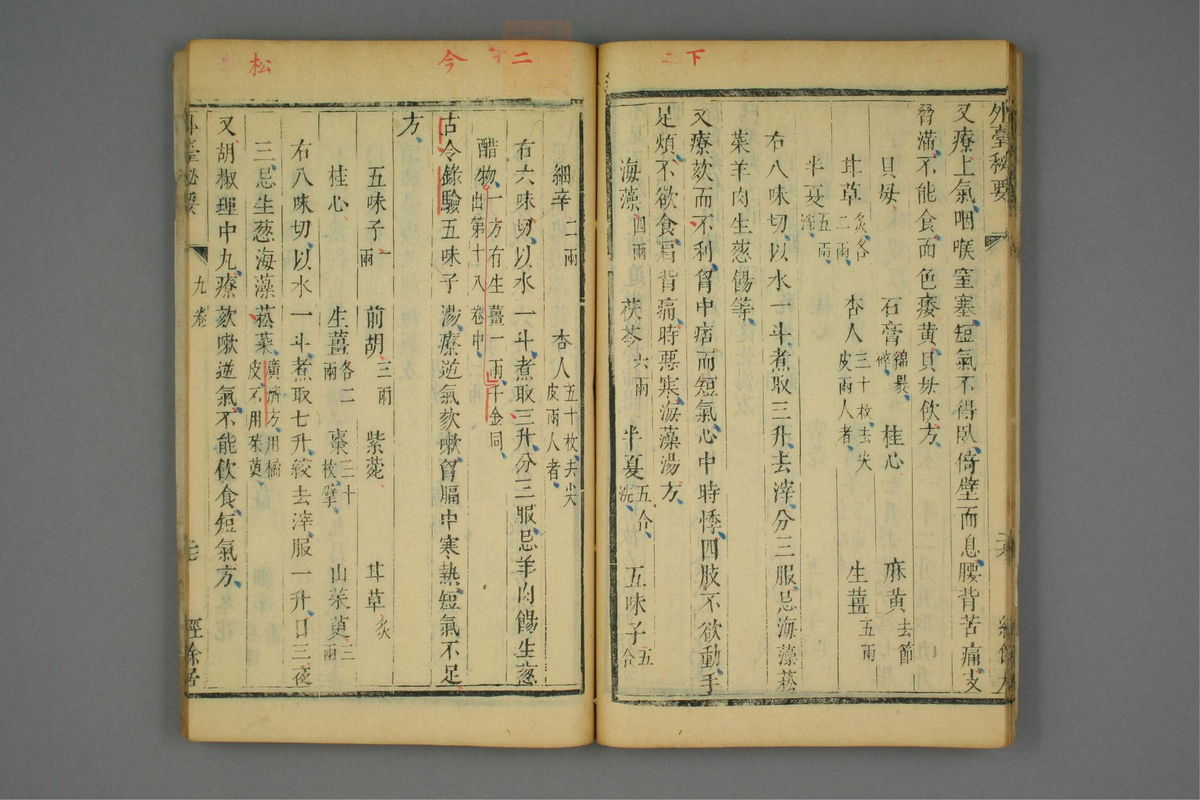 外臺秘要
又療上氣咽喉窒塞短氣不得臥倚壁而息腰背苦痛支
脅滿不能食面色痿黃貝母飲方
貝母 石膏綿裹碎 桂心 麻黃去節
甘草炙各二兩 杏人三十枚去尖皮兩人者 生薑五兩
半夏五兩洗
右八味切以水一斗煮取三升去滓分三服忌海藻菘
菜羊肉生葱餳等
又療欬而不利胷中痞而短氣心中時悸四肢不欲動手
足煩不欲食肩背痛時惡寒海藻湯方
海藻四兩 茯苓六兩 半夏五合洗 五味子五合
細辛二兩 杏人五十枚去尖皮兩人者
右六味切以水一斗煮取三升分三服忌羊肉餳生葱
醋物一方有生薑一兩千金同出第十八卷中
古今錄驗五味子湯療逆氣欬嗽胷膈中寒熱短氣不足
方
五味子一兩 前胡三兩 紫菀 甘草炙
桂心 生薑各二兩 棗三十枚擘 山茱萸三兩
右八味切以水一斗煮取七升絞去滓服一升日三夜
三忌生葱海藻菘菜廣濟方用橘皮不用茱萸
又胡椒理中丸療欬嗽逆氣不能飲食短氣方
外臺秘要
九卷
經餘居
松
今
二
下
二